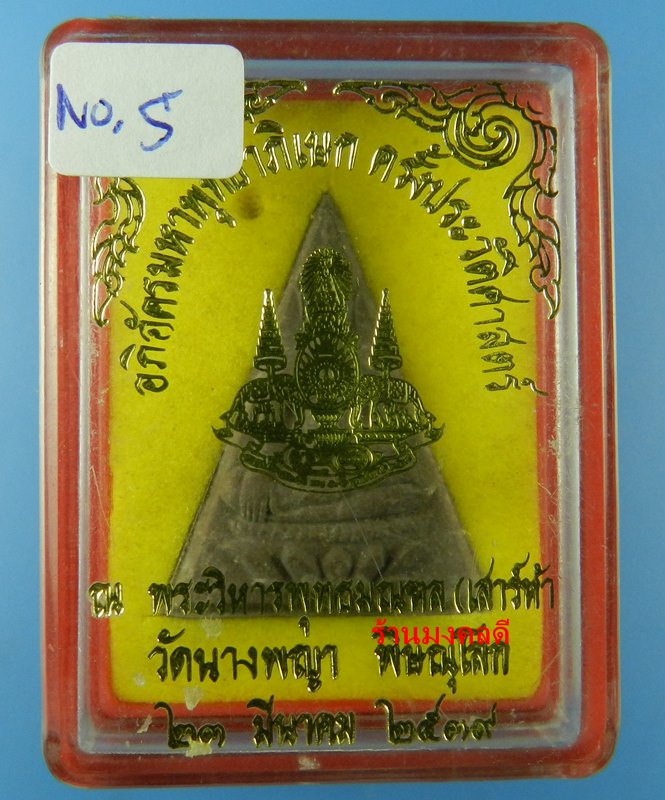 No. 5
อภิอัครมหาพุทธาภิเษก ครั้งประวัติศาสตร์
ณ พระวิหารพุทธมณฑล (เสาร์ห้า
วัดนางพญา พิษณุโลก
ร้านมงคลดี
๒๓ มีนาคม ๒๕๓๙